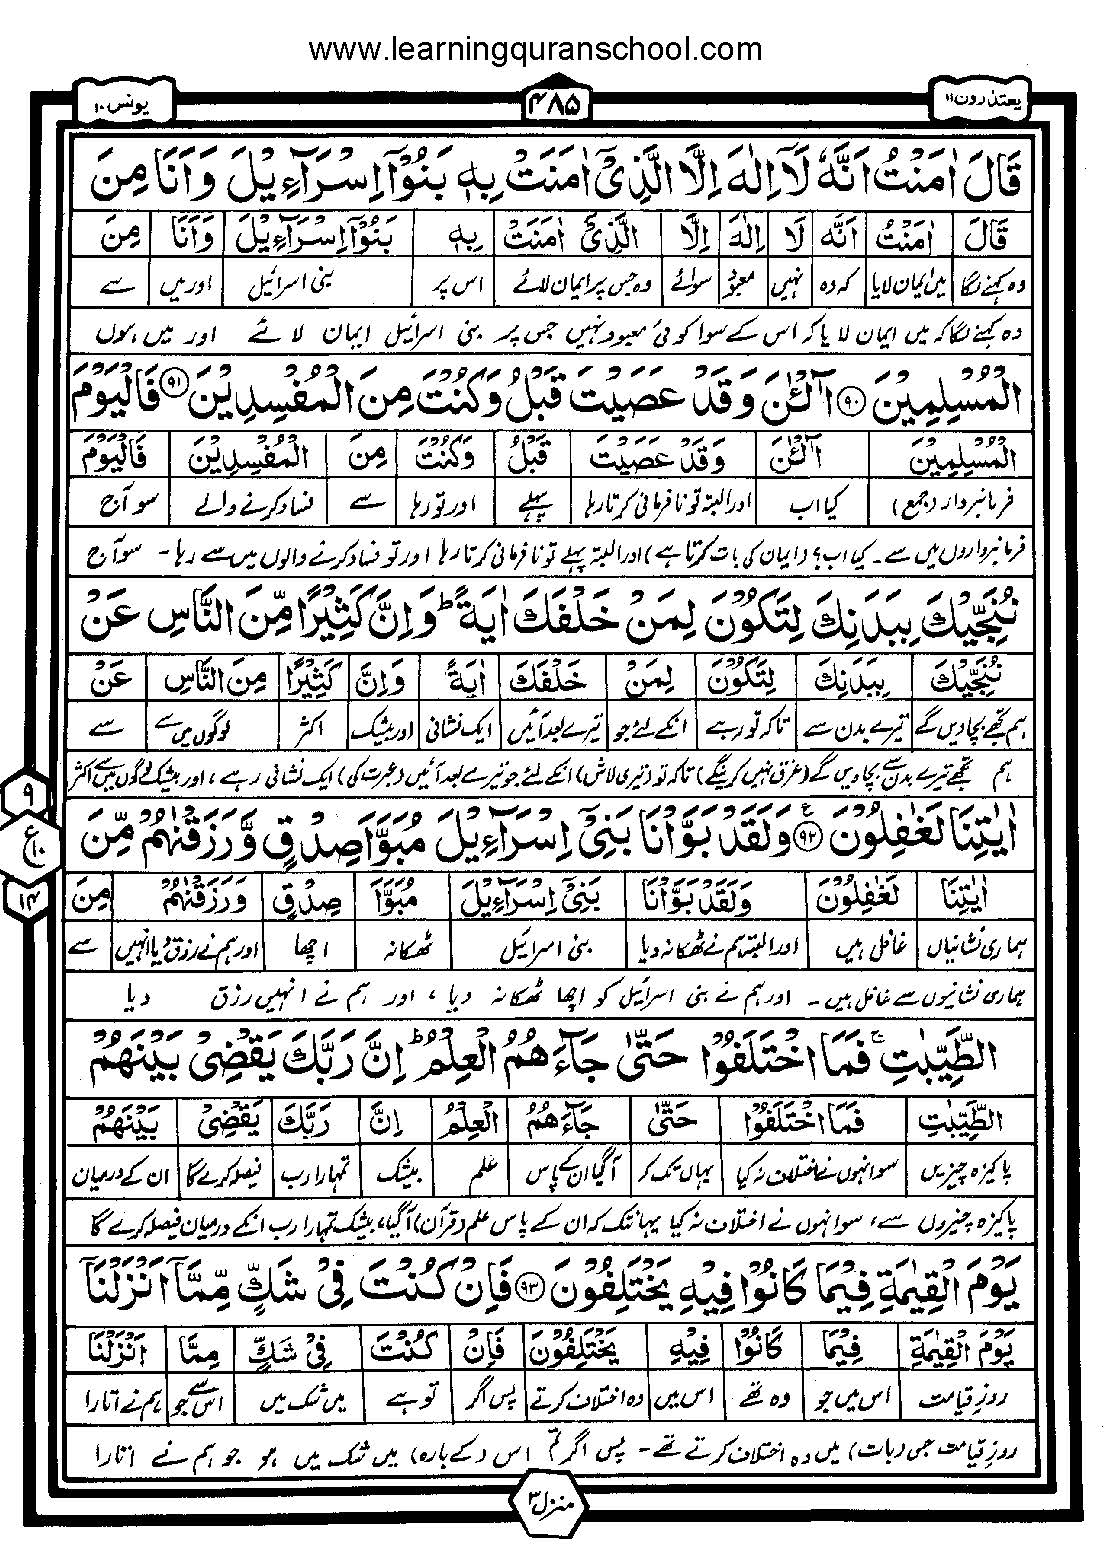 www.learningquranschool.com
یعتذرون ۱۱
۴۸۵
یونس ۱۰
قَالَ اٰمَنْتُ اَنَّهٗ لَاۤ اِلٰهَ اِلَّا الَّذِیْۤ اٰمَنَتْ بِهٖ بَنُوْۤا اِسْرَآءِیْلَ وَاَنَا مِنَ
قَالَ اٰمَنْتُ اَنَّهٗ لَا اِلٰهَ اِلَّا الَّذِیْ اٰمَنَتْ بِهٖ بَنُوْۤا اِسْرَآءِیْلَ وَاَنَا مِنَ
وہ کہنے لگا میں ایمان لایا کہ وہ نہیں معبود سوائے وہ جس پر ایمان لائے اس پر بنی اسرائیل اور میں سے
وہ کہنے لگا کہ میں ایمان لایا کہ اس کے سوا کوئی معبود نہیں جس پر بنی اسرائیل ایمان لائے اور میں ہوں
الْمُسْلِمِیْنَ ۹۰ آٰلْـٰٔنَ وَقَدْ عَصَیْتَ قَبْلُ وَكُنْتَ مِنَ الْمُفْسِدِیْنَ ۹۱ فَالْیَوْمَ
الْمُسْلِمِیْنَ آٰلْـٰٔنَ وَقَدْ عَصَیْتَ قَبْلُ وَكُنْتَ مِنَ الْمُفْسِدِیْنَ فَالْیَوْمَ
فرمانبردار (جمع) کیا اب اور البتہ تو نافرمانی کرتا رہا پہلے اور تو رہا سے فساد کرنے والے سو آج
فرمانبرداروں میں سے۔ کیا اب؟ (ایمان کی بات کرتا ہے) اور البتہ پہلے تو نافرمانی کرتا رہا اور تو فساد کرنے والوں میں سے رہا۔ سو آج
نُنَجِّیْكَ بِبَدَنِكَ لِتَكُوْنَ لِمَنْ خَلْفَكَ اٰیَةً ؕ وَاِنَّ كَثِیْرًا مِّنَ النَّاسِ عَنْ
نُنَجِّیْكَ بِبَدَنِكَ لِتَكُوْنَ لِمَنْ خَلْفَكَ اٰیَةً وَاِنَّ كَثِیْرًا مِنَ النَّاسِ عَنْ
ہم تجھے بچا دیں گے تیرے بدن سے تاکہ تو رہے انکے لئے جو تیرے بعد آئیں ایک نشانی اور بیشک اکثر لوگوں میں سے سے
ہم تجھے تیرے بدن سے بچا دیں گے (غرق نہیں کرینگے) تاکہ تو (تیری لاش) انکے لئے جو تیرے بعد آئیں (عبرت کی) ایک نشانی رہے، اور بیشک لوگوں میں سے اکثر
۹
ع ۱۰
۱۴
اٰیٰتِنَا لَغٰفِلُوْنَ ۹۲ وَلَقَدْ بَوَّاْنَا بَنِیْۤ اِسْرَآءِیْلَ مُبَوَّاَ صِدْقٍ وَّرَزَقْنٰهُمْ مِّنَ
اٰیٰتِنَا لَغٰفِلُوْنَ وَلَقَدْ بَوَّاْنَا بَنِیْۤ اِسْرَآءِیْلَ مُبَوَّاَ صِدْقٍ وَرَزَقْنٰهُمْ مِنَ
ہماری نشانیاں غافل ہیں اور البتہ ہم نے ٹھکانہ دیا بنی اسرائیل ٹھکانہ اچھا اور ہم نے رزق دیا انہیں سے
ہماری نشانیوں سے غافل ہیں۔ اور ہم نے بنی اسرائیل کو اچھا ٹھکانہ دیا، اور ہم نے انہیں رزق دیا
الطَّیِّبٰتِ ۚ فَمَا اخْتَلَفُوْا حَتّٰی جَآءَهُمُ الْعِلْمُ ؕ اِنَّ رَبَّكَ یَقْضِیْ بَیْنَهُمْ
الطَّیِّبٰتِ فَمَا اخْتَلَفُوْا حَتّٰی جَآءَهُمُ الْعِلْمُ اِنَّ رَبَّكَ یَقْضِیْ بَیْنَهُمْ
پاکیزہ چیزیں سو انہوں نے اختلاف نہ کیا یہاں تک کہ آگیا ان کے پاس علم بیشک تمہارا رب فیصلہ کرے گا ان کے درمیان
پاکیزہ چیزوں سے، سو انہوں نے اختلاف نہ کیا یہانتک کہ ان کے پاس علم (قرآن) آگیا، بیشک تمہارا رب انکے درمیان فیصلہ کرے گا
یَوْمَ الْقِیٰمَةِ فِیْمَا كَانُوْا فِیْهِ یَخْتَلِفُوْنَ ۹۳ فَاِنْ كُنْتَ فِیْ شَكٍّ مِّمَّاۤ اَنْزَلْنَاۤ
یَوْمَ الْقِیٰمَةِ فِیْمَا كَانُوْا فِیْهِ یَخْتَلِفُوْنَ فَاِنْ كُنْتَ فِیْ شَكٍّ مِمَّا اَنْزَلْنَا
روز قیامت اس میں جو وہ تھے اس میں وہ اختلاف کرتے پس اگر تو ہے میں شک میں اس سے جو ہم نے اتارا
روز قیامت جس (بات) میں وہ اختلاف کرتے تھے۔ پس اگر تم اس (کے بارہ) میں شک میں ہو جو ہم نے اتارا
منزل ۳